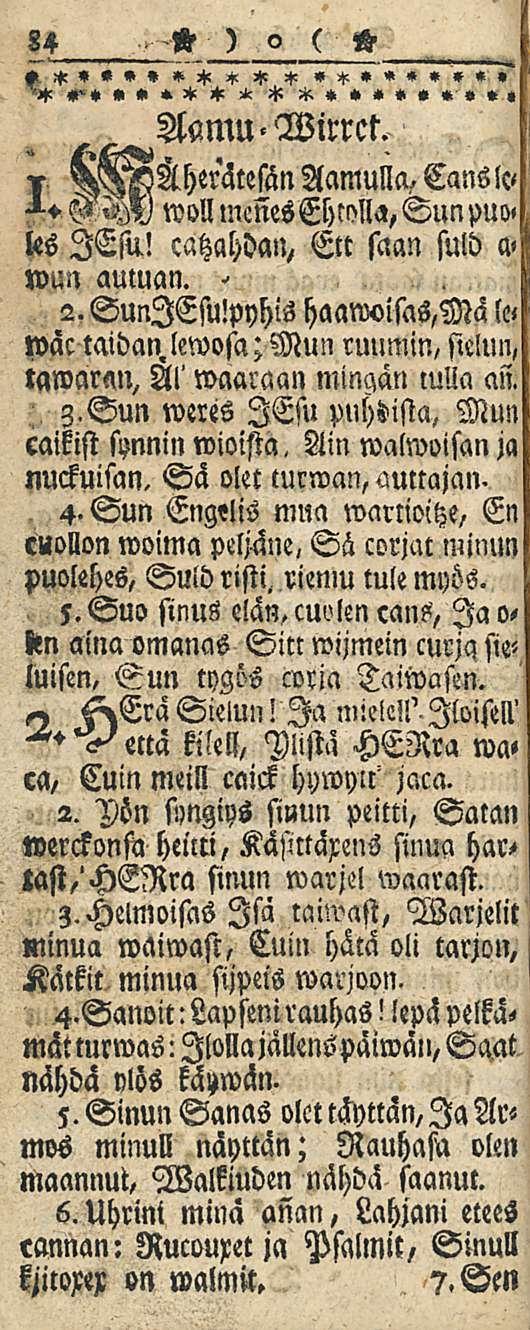 84 ) o (
Aamu-Wirret.
1. MÄ herätesän Aamulla, Cans le-
woll meñes Ehtolla, Sun puo-
les JEsu! catzahdan, Ett saan suld a-
wun autuan.
2. Sun JEsu! pyhis haawoisas, Mä le-
wäc taidan lewosa; Mun ruumin, sielun,
tawaran, Äl' waaraan mingän tulla añ.
3. Sun weres JEsu puhdista, Mun
caikist synnin wioista, Ain walwoisan ja
nuckuisan, Sä olet turwan, auttajan.
4. Sun Engelis mua wartioitze, En
cuollon woima peljäne, Sä corjat minun
puolehes, Suld risti, riemu tule myös.
5. Suo sinus elän, cuolen cans, Ja o-
len aina omanas Sitt wijmein curja sie-
luisen, Sun tygös corja Taiwasen.
2. HErä Sielun! Ja mielell' Iloisell'
että kilell, Ylistä HERra wa-
ca, Cuin meill caick hywytt' jaca.
2. Yön syngiys sinun peitti, Satan
werckonsa heitti, Käsittäxens sinua har-
tast, HERra sinun warjel waarast.
3. Helmoisas Isä taiwast, Warjelit
minua waiwast, Cuin hätä oli tarjon,
Kätkit minua sijpeis warjoon.
4. Sanoit: Lapseni rauhas! lepä pelkä-
mät turwas: Ilolla jällens päiwän, Saat
nähdä ylös käywän.
5. Sinun Sanas olet täyttän, Ja Ar-
mos minull näyttän; Rauhasa olen
maannut, Walkiuden nähdä saanut.
6. Uhrini minä añan, Lahjani etees
cannan: Rucouxet ja Psalmit, Sinull
kjitoxex on walmit, 7. Sen